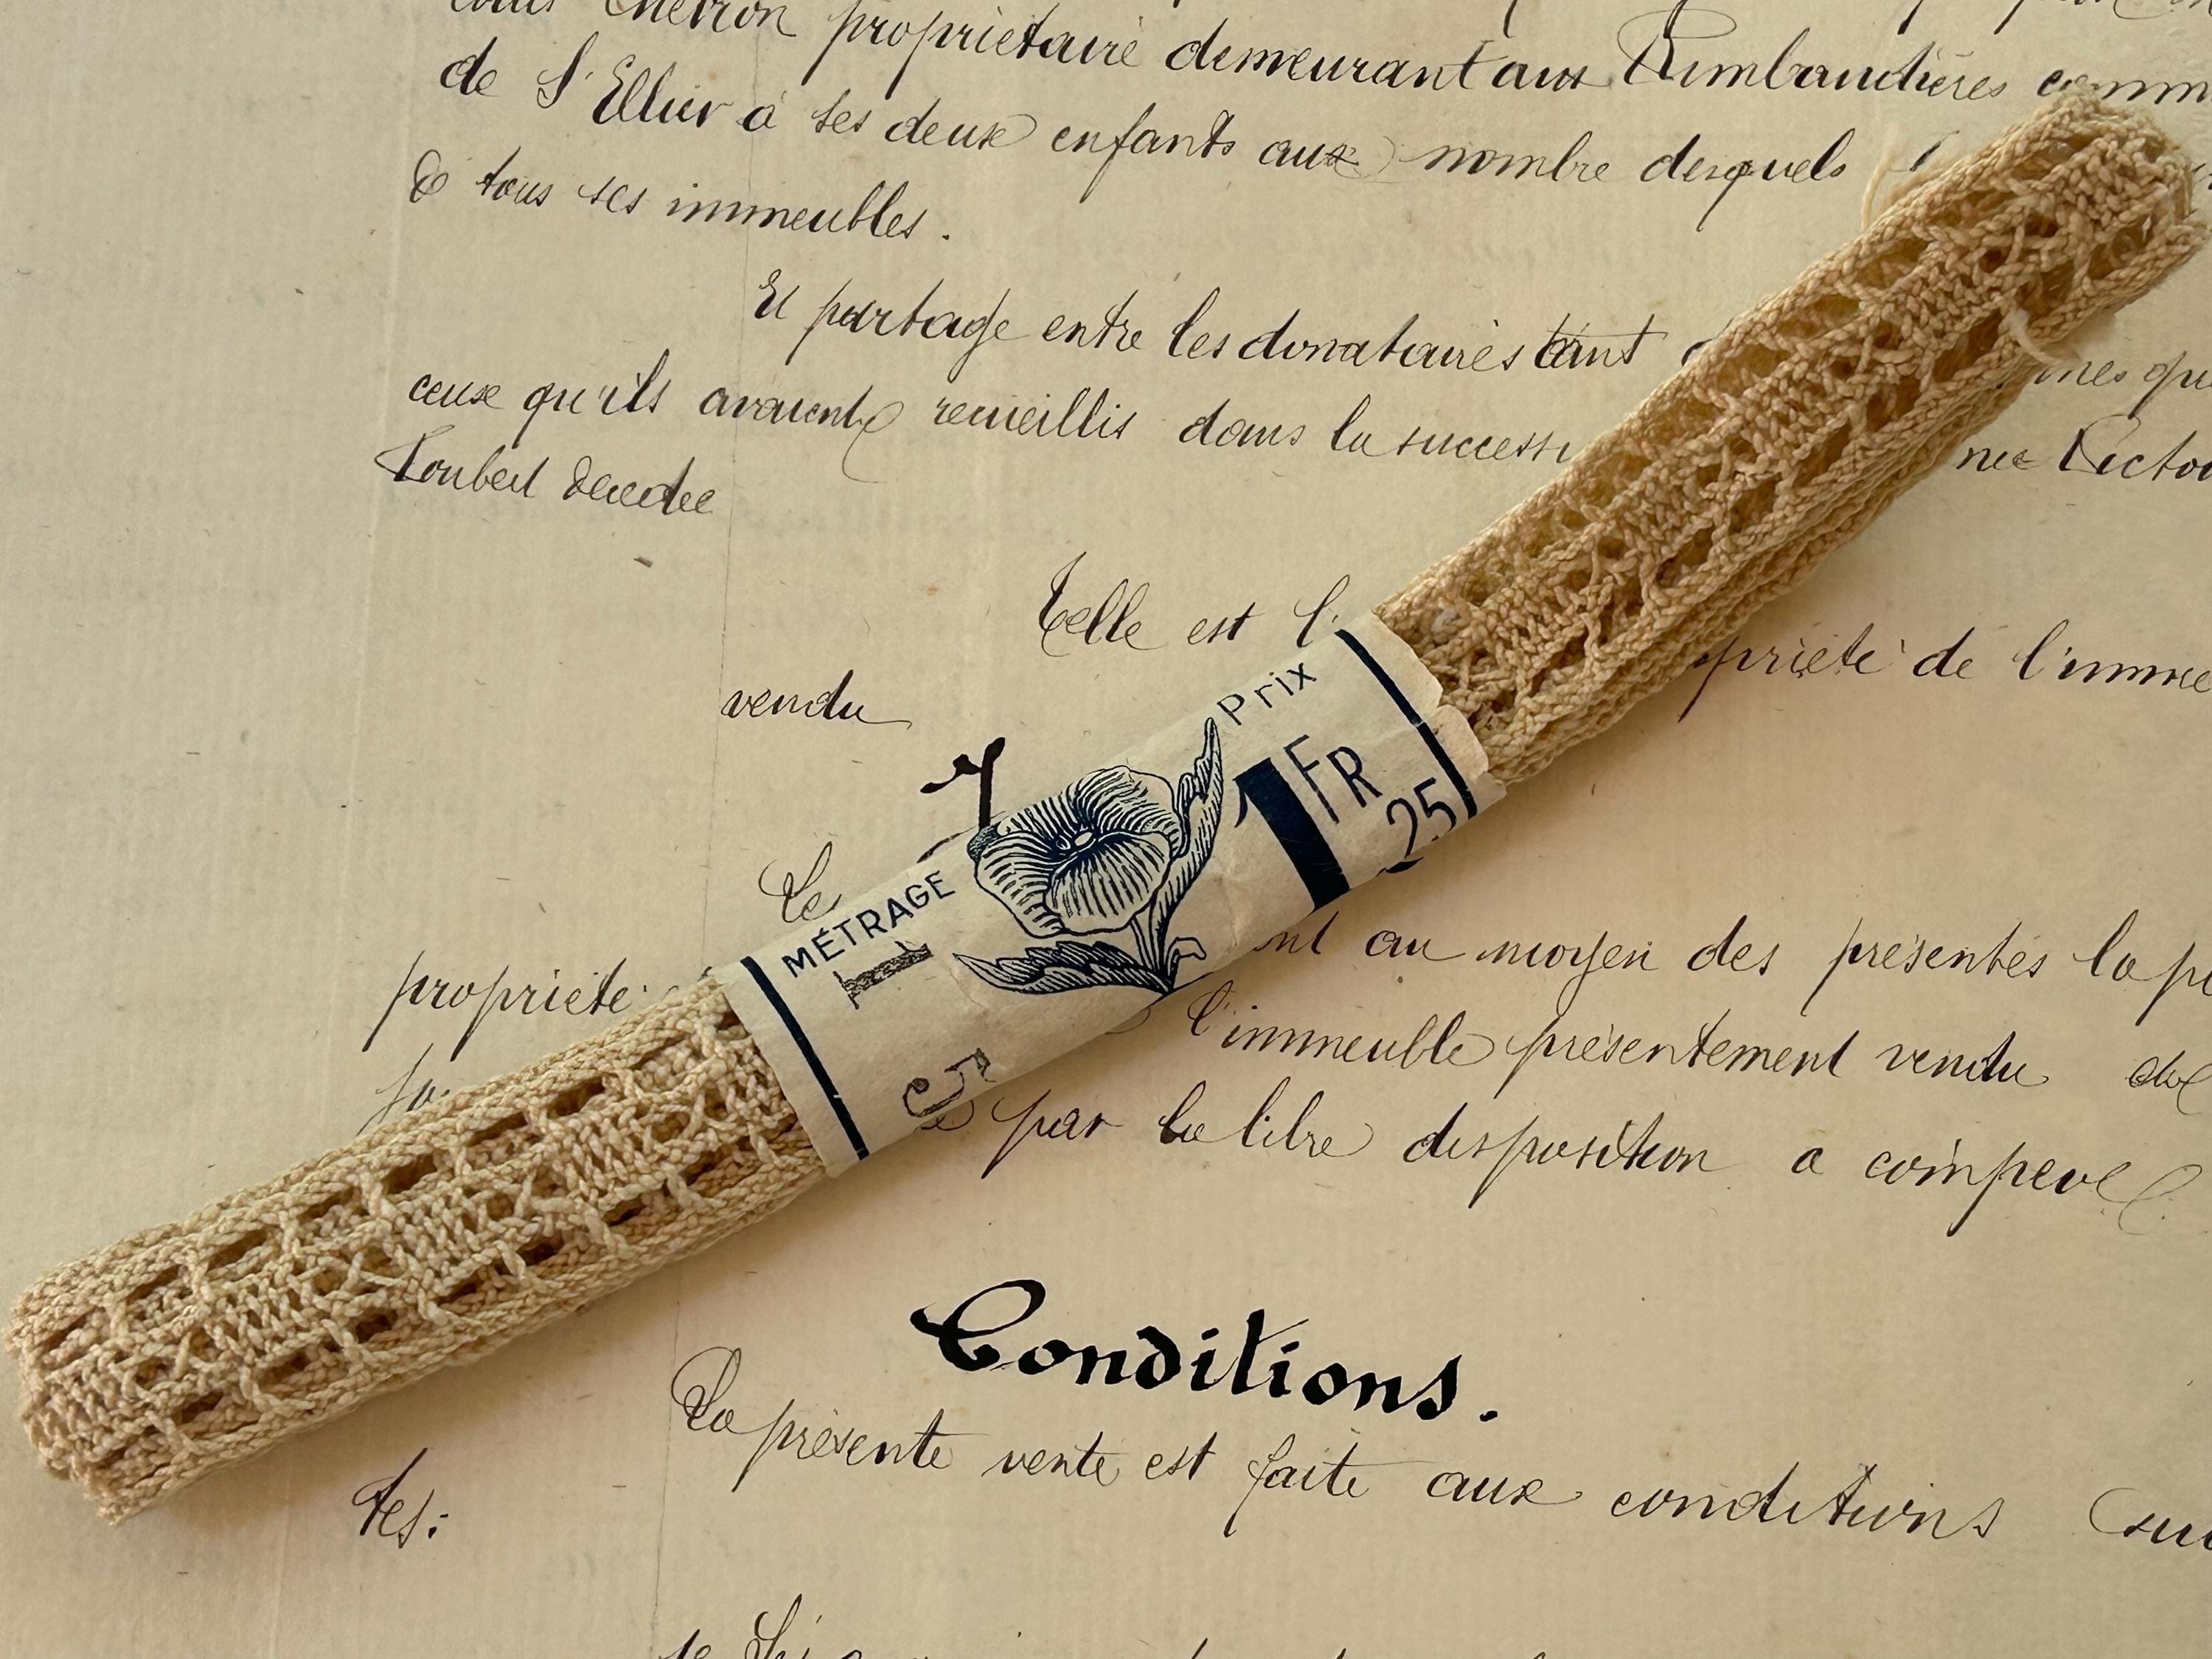 propriétaire demeurant aux Rimbaudières comm
de St Ellier à ses deux enfants aux nombre desquels
& tous ses immeubles.
Et partage entre les donataires tant
ceux qu'ils avaient recueillis dans la successi
née Victoi
Loubert décédée
Telle est l'
priété de l'imme
vendu
Prix
1 FR 25
MÉTRAGE
1
5
Le
nt au moyen des présentes la p
propriété
l'immeuble présentement vendu
par la libre disposition a comp
Conditions.
La présente vente est faite aux conditions sui
tes: